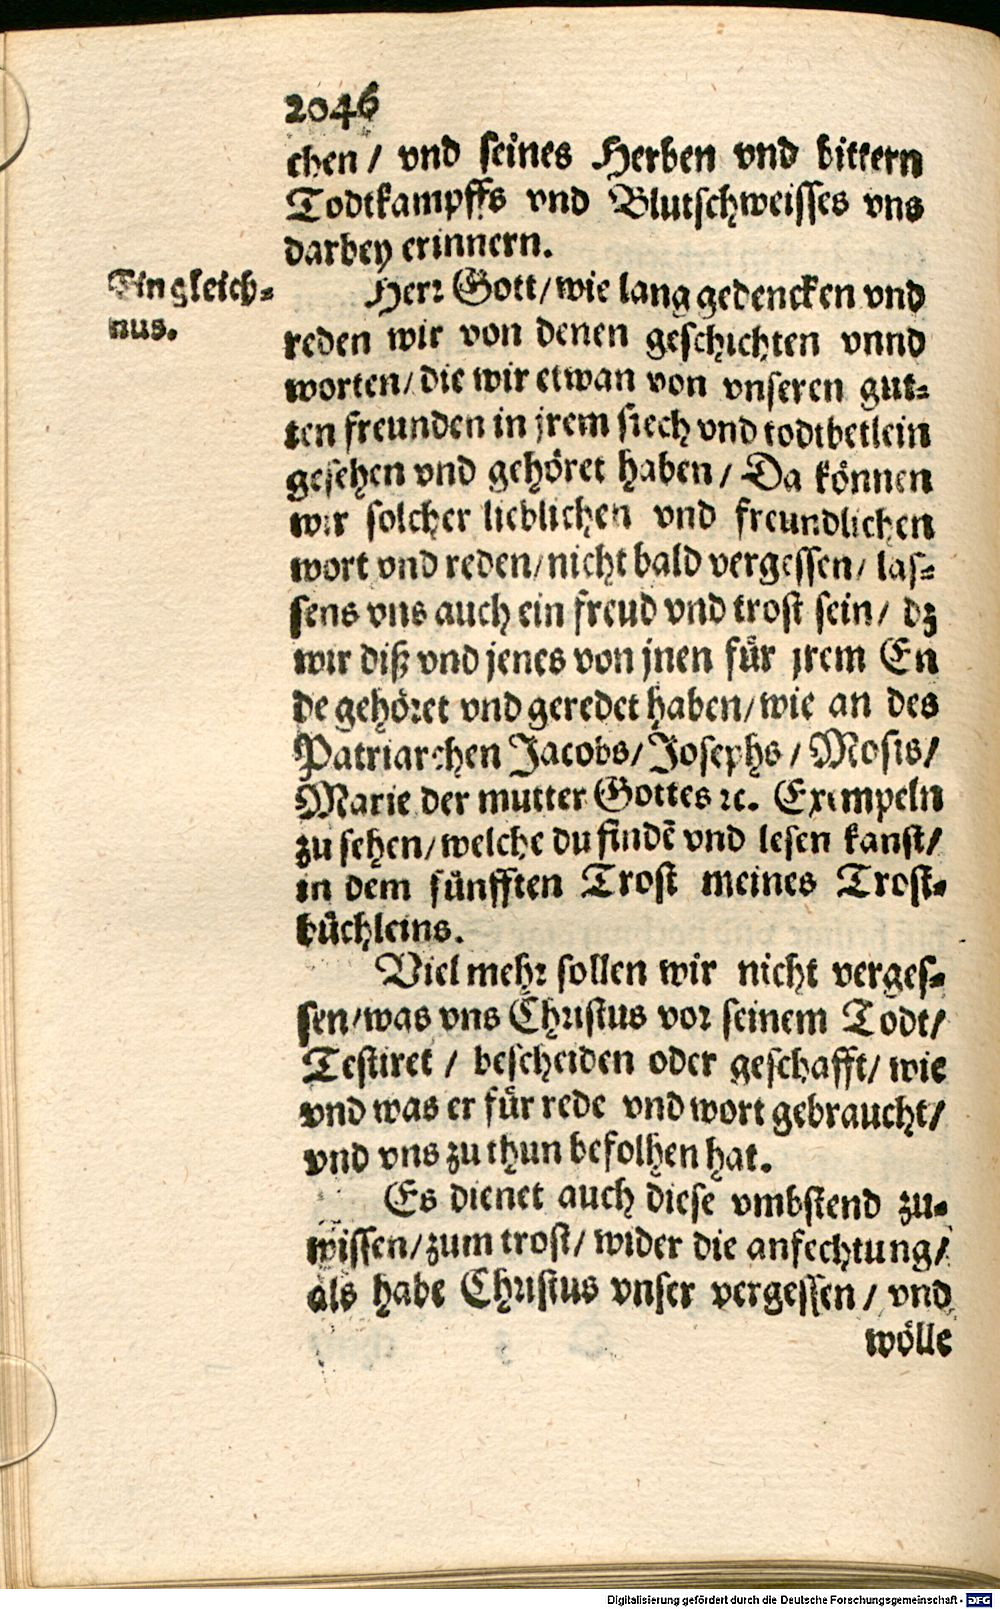 2046
chen / vnd seines Herben vnd bittern
Todtkampffs vnd Blutschweisses vns
darbey erinnern.
Ein gleich-
nus.
Herr Gott / wie lang gedencken vnd
reden wir von denen geschichten vnnd
worten / die wir etwan von vnseren gut-
ten freunden in jrem siech vnd todtbetlein
gesehen vnd gehöret haben / Da können
wir solcher lieblichen vnd freundlichen
wort vnd reden / nicht bald vergessen / las-
sens vns auch ein freud vnd trost sein / dz
wir diß vnd jenes von jnen für jrem En
de gehöret vnd geredet haben / wie an des
Patriarchen Jacobs / Josephs / Mosis /
Marie der mutter Gottes ꝛc. Exempeln
zu sehen / welche du findē vnd lesen kanst /
in dem fünfften Trost meines Trost-
büchleins.
Viel mehr sollen wir nicht verges-
sen / was vns Christus vor seinem Todt /
Testiret / bescheiden oder geschafft / wie
vnd was er für rede vnd wort gebraucht /
vnd vns zu thun befolhen hat.
Es dienet auch diese vmbstend zu-
wissen / zum trost / wider die anfechtung /
als habe Christus vnser vergessen / vnd
wölle
Digitalisierung gefördert durch die Deutsche Forschungsgemeinschaft - DFG